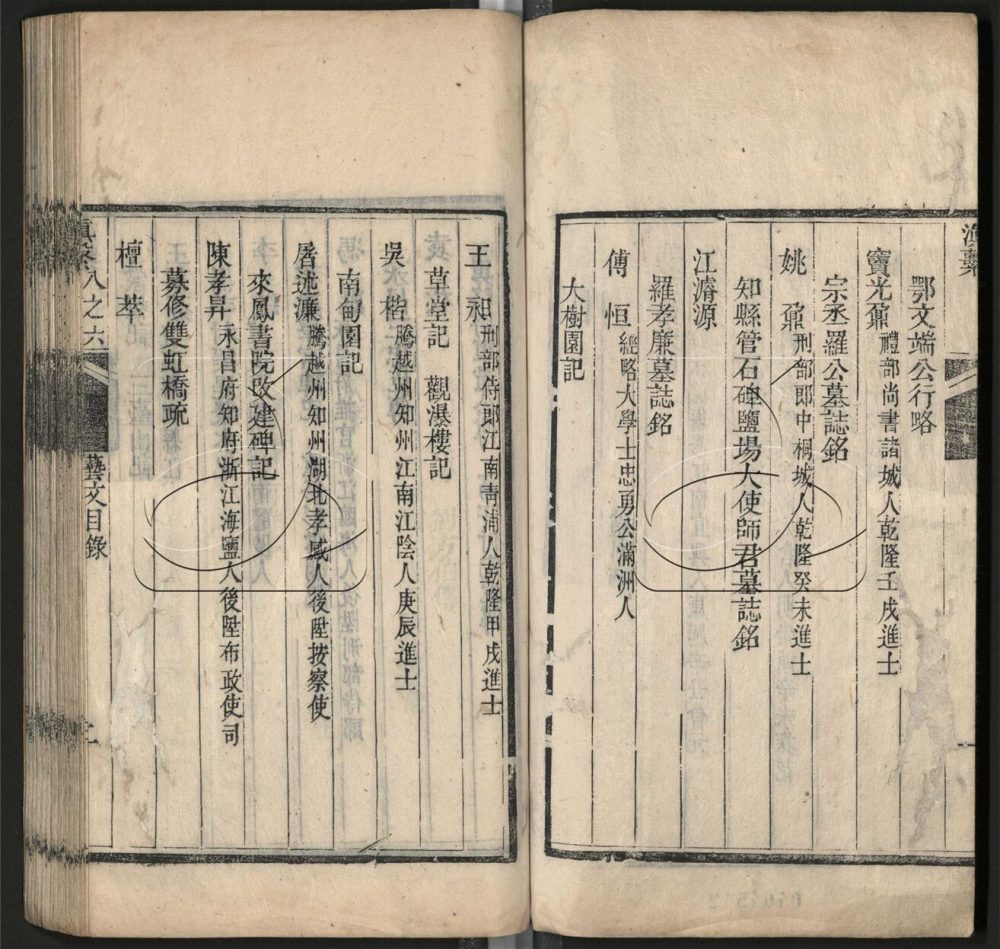 滇繫
鄂文端公行略
竇光鼐禮部尚書諸城人乾隆壬戌進士
宗丞羅公墓誌銘
姚鼐刑部郎中桐城人乾隆癸未進士
知縣管石碑鹽場大使師君墓誌銘
江濬源
羅孝廉墓誌銘
傅恒經略大學士忠勇公滿洲人
大樹園記
王昶刑部侍郎江南青浦人乾隆甲戌進士
草堂記　觀瀑樓記
吳楷騰越州知州江南江陰人庚辰進士
南甸園記
屠述濂騰越州知州湖北孝感人後陞按察使
來鳳書院改建碑記
陳孝昇永昌府知府浙江海鹽人後陞布政使司
募修雙虹橋疏
檀萃
滇繫八之六　藝文目錄